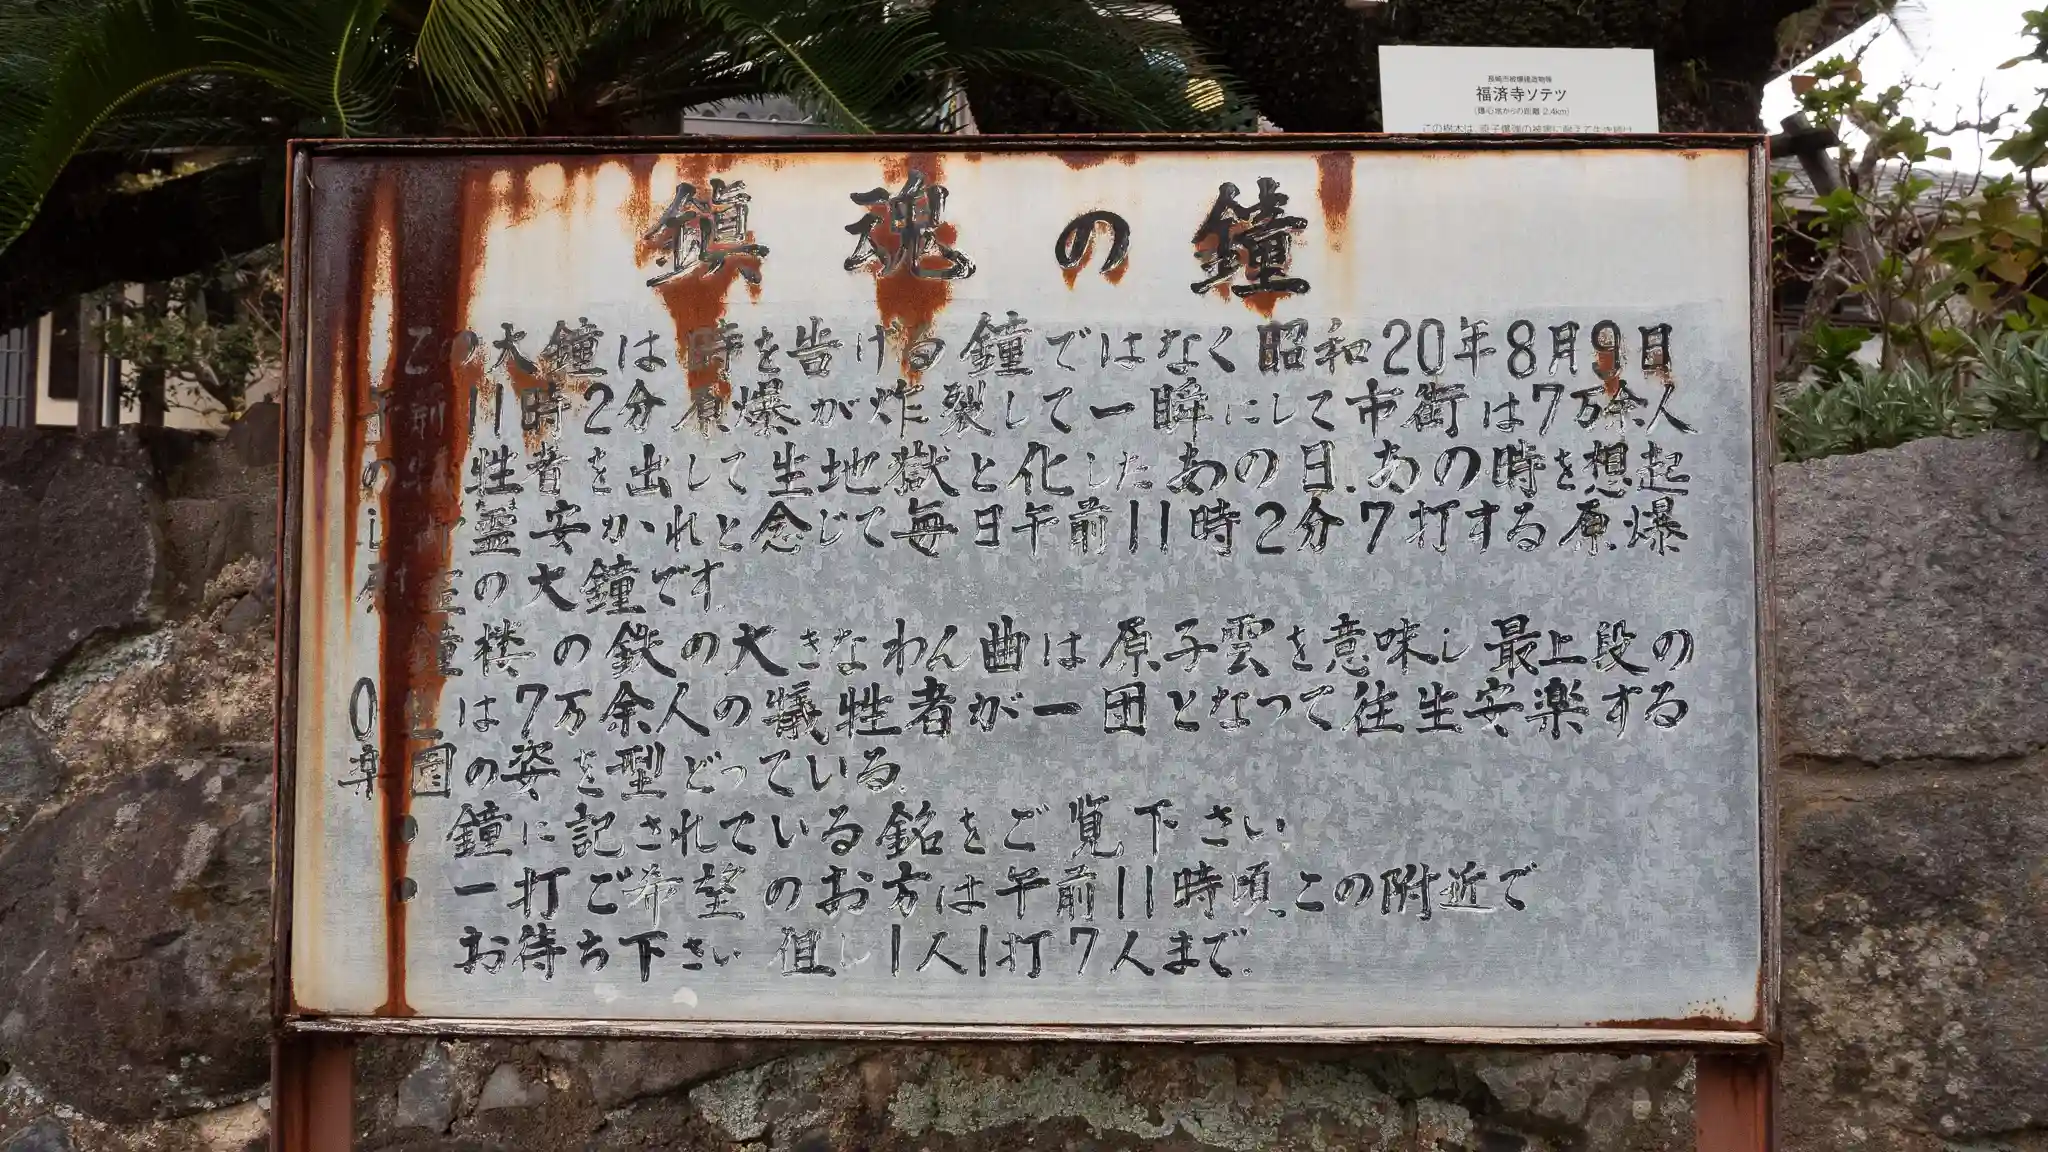 長崎市被爆建造物等
福済寺ソテツ
(爆心地からの距離 2.4km)
この樹木は、原子爆弾の被害に耐えて生き続け
鎮魂の鐘
この大鐘は時を告げる鐘ではなく昭和20年8月9日
午前11時2分原爆が炸裂して一瞬にして市街は7万余人
の犠牲者を出して生地獄と化したあの日.あの時を想起
し御霊安かれと念じて毎日午前11時2分7打する原爆
の大鐘です.
鐘楼の鉄の大きなわん曲は原子雲を意味し最上段の
0 は7万余人の犠牲者が一団となって往生安楽する
楽園の姿を型どっている.
・鐘に記されている銘をご覧下さい
・一打ご希望のお方は午前11時頃.この附近で
お待ち下さい 但し1人1打7人まで.